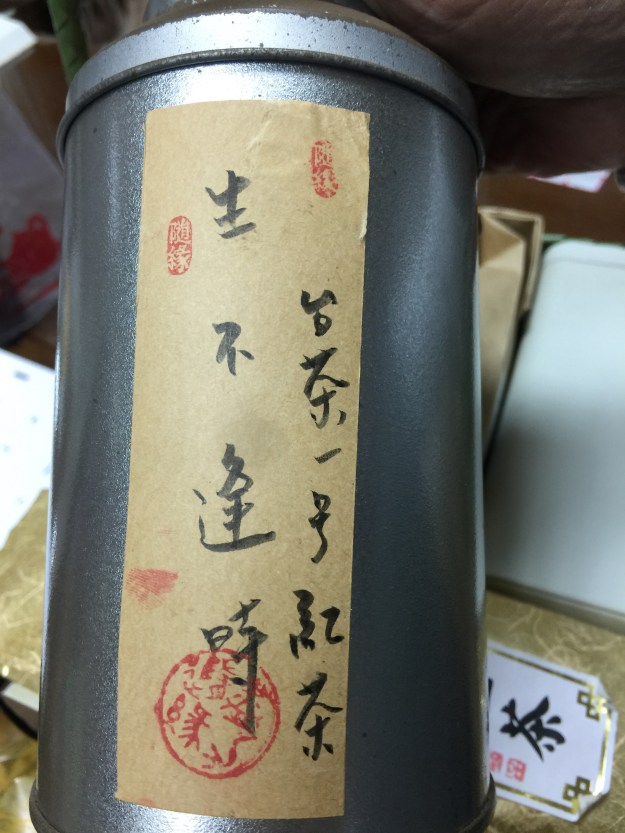 台茶一号紅茶
生不逢時
隨緣
隨緣
茶